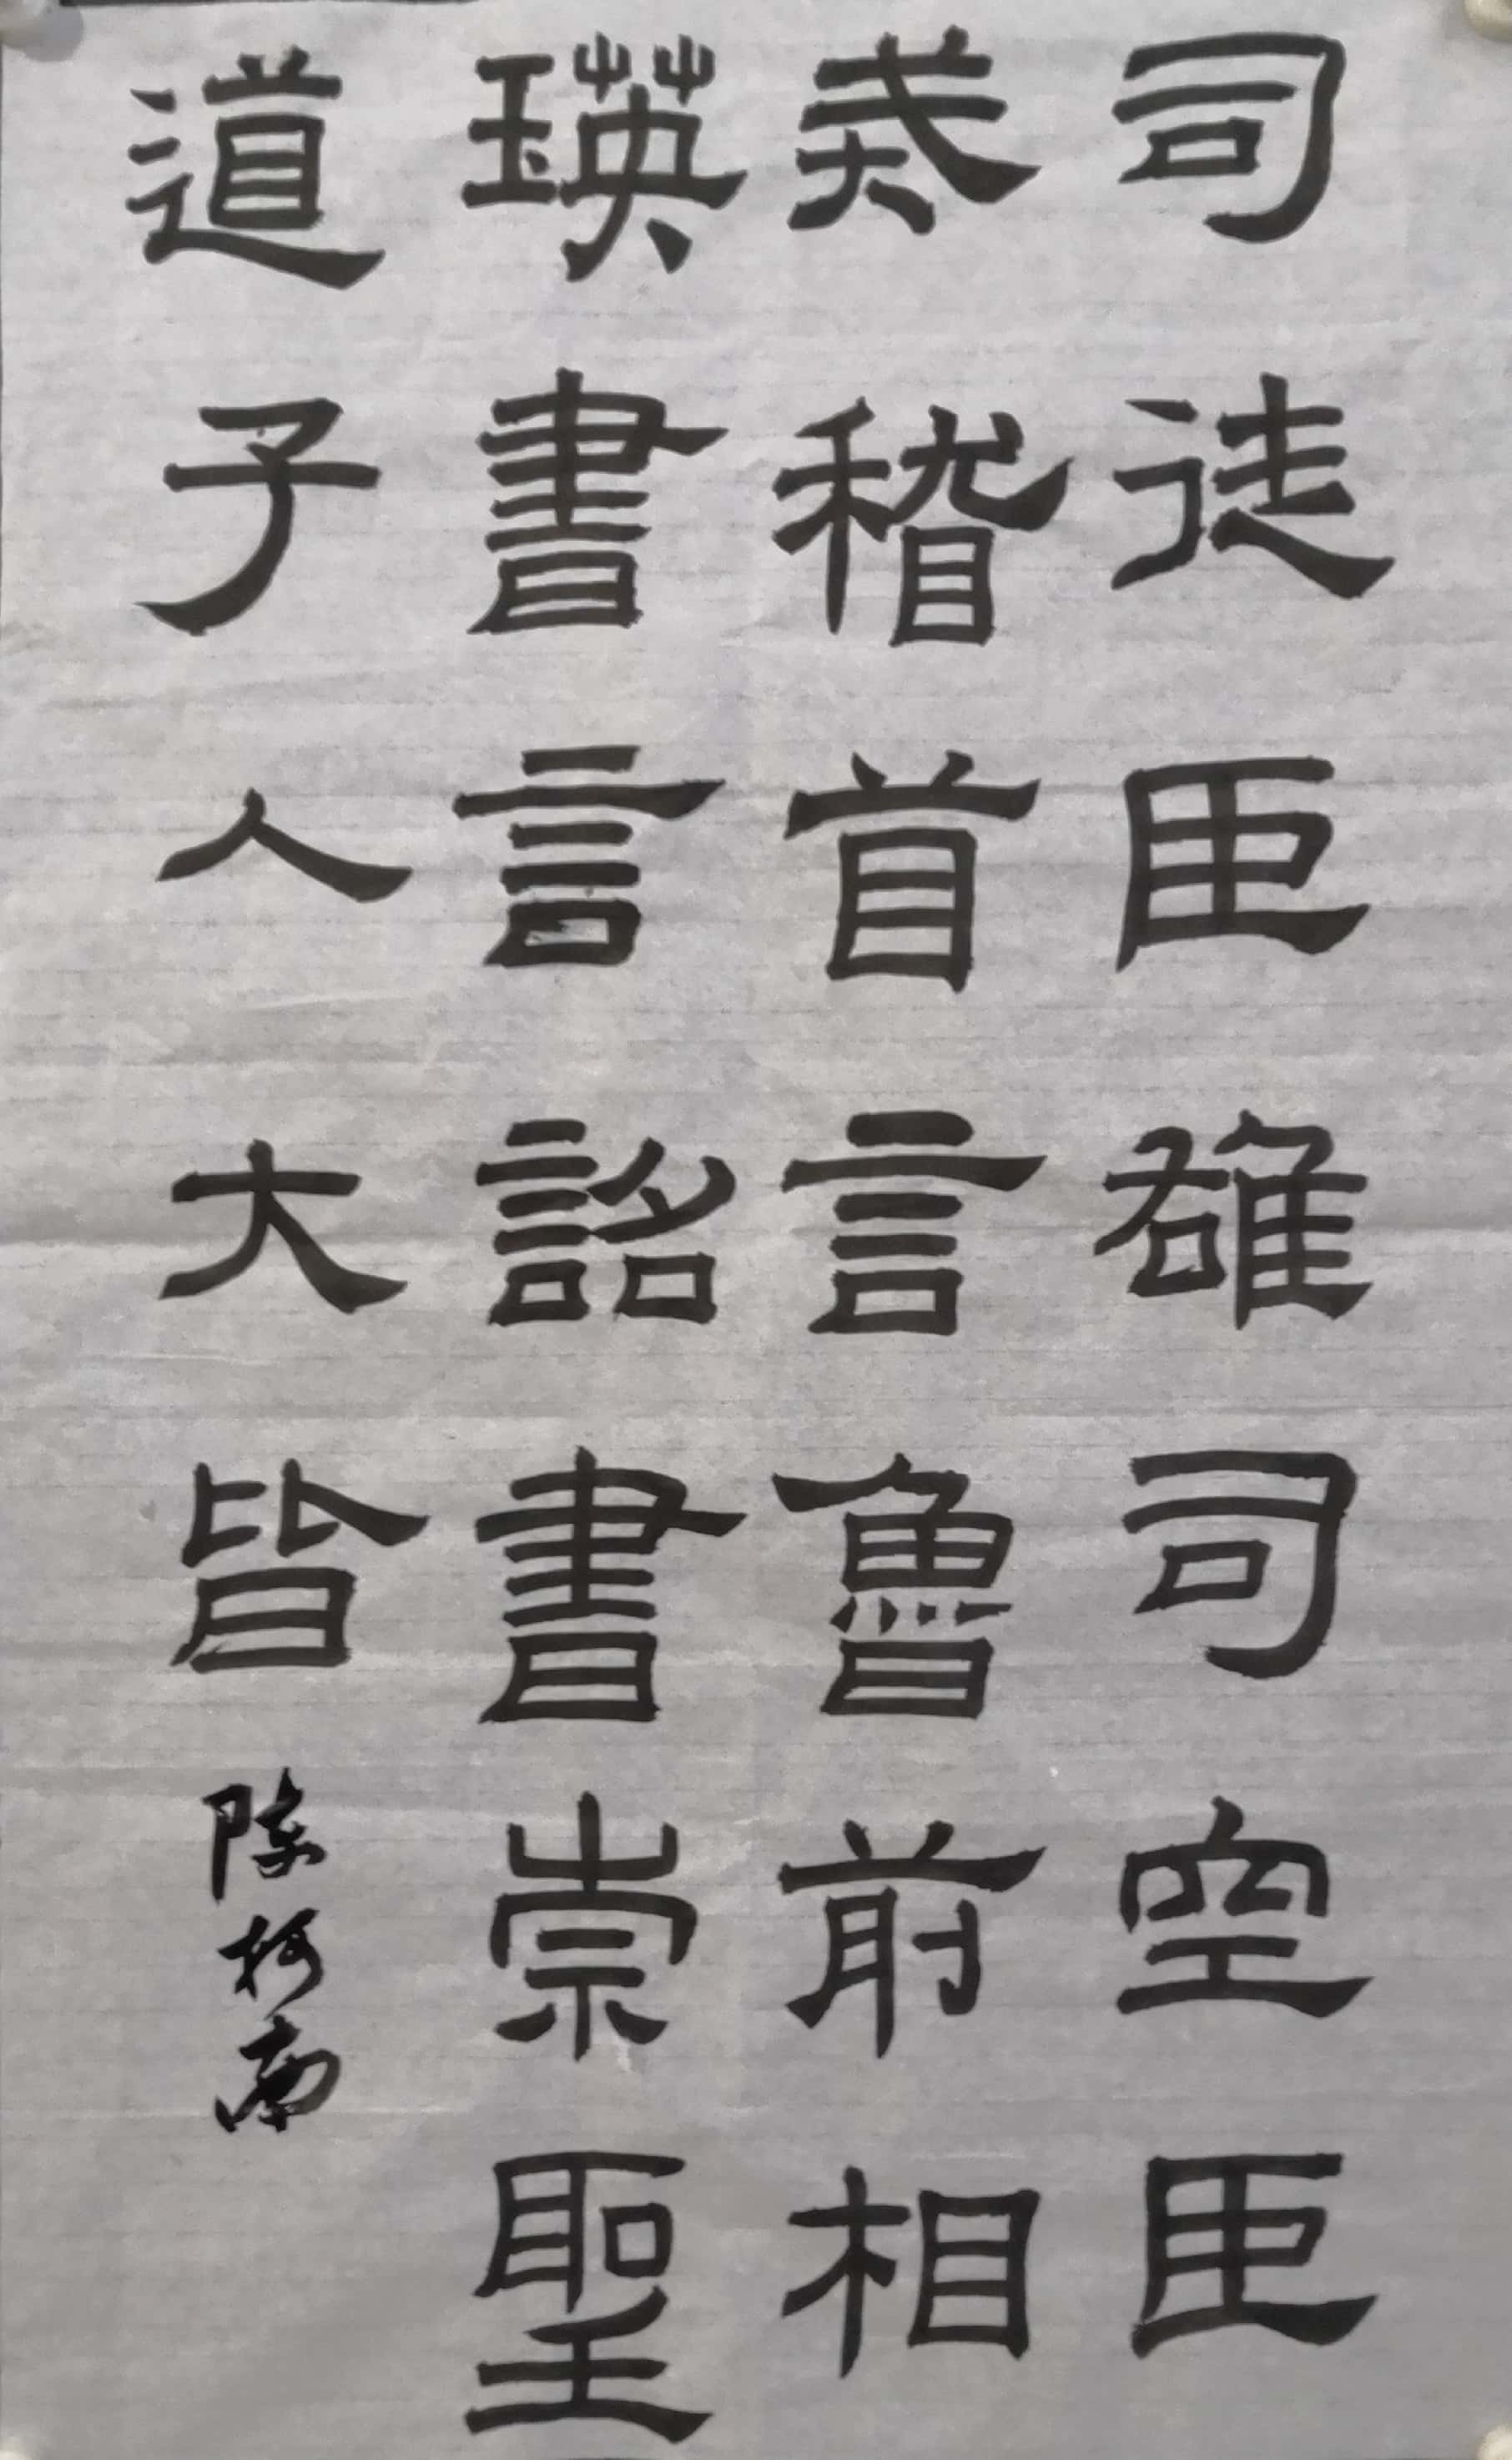 司徒臣雄司空臣
戒稽首言魯前相
瑛書言詔書崇聖
道子人大皆
陈柯南